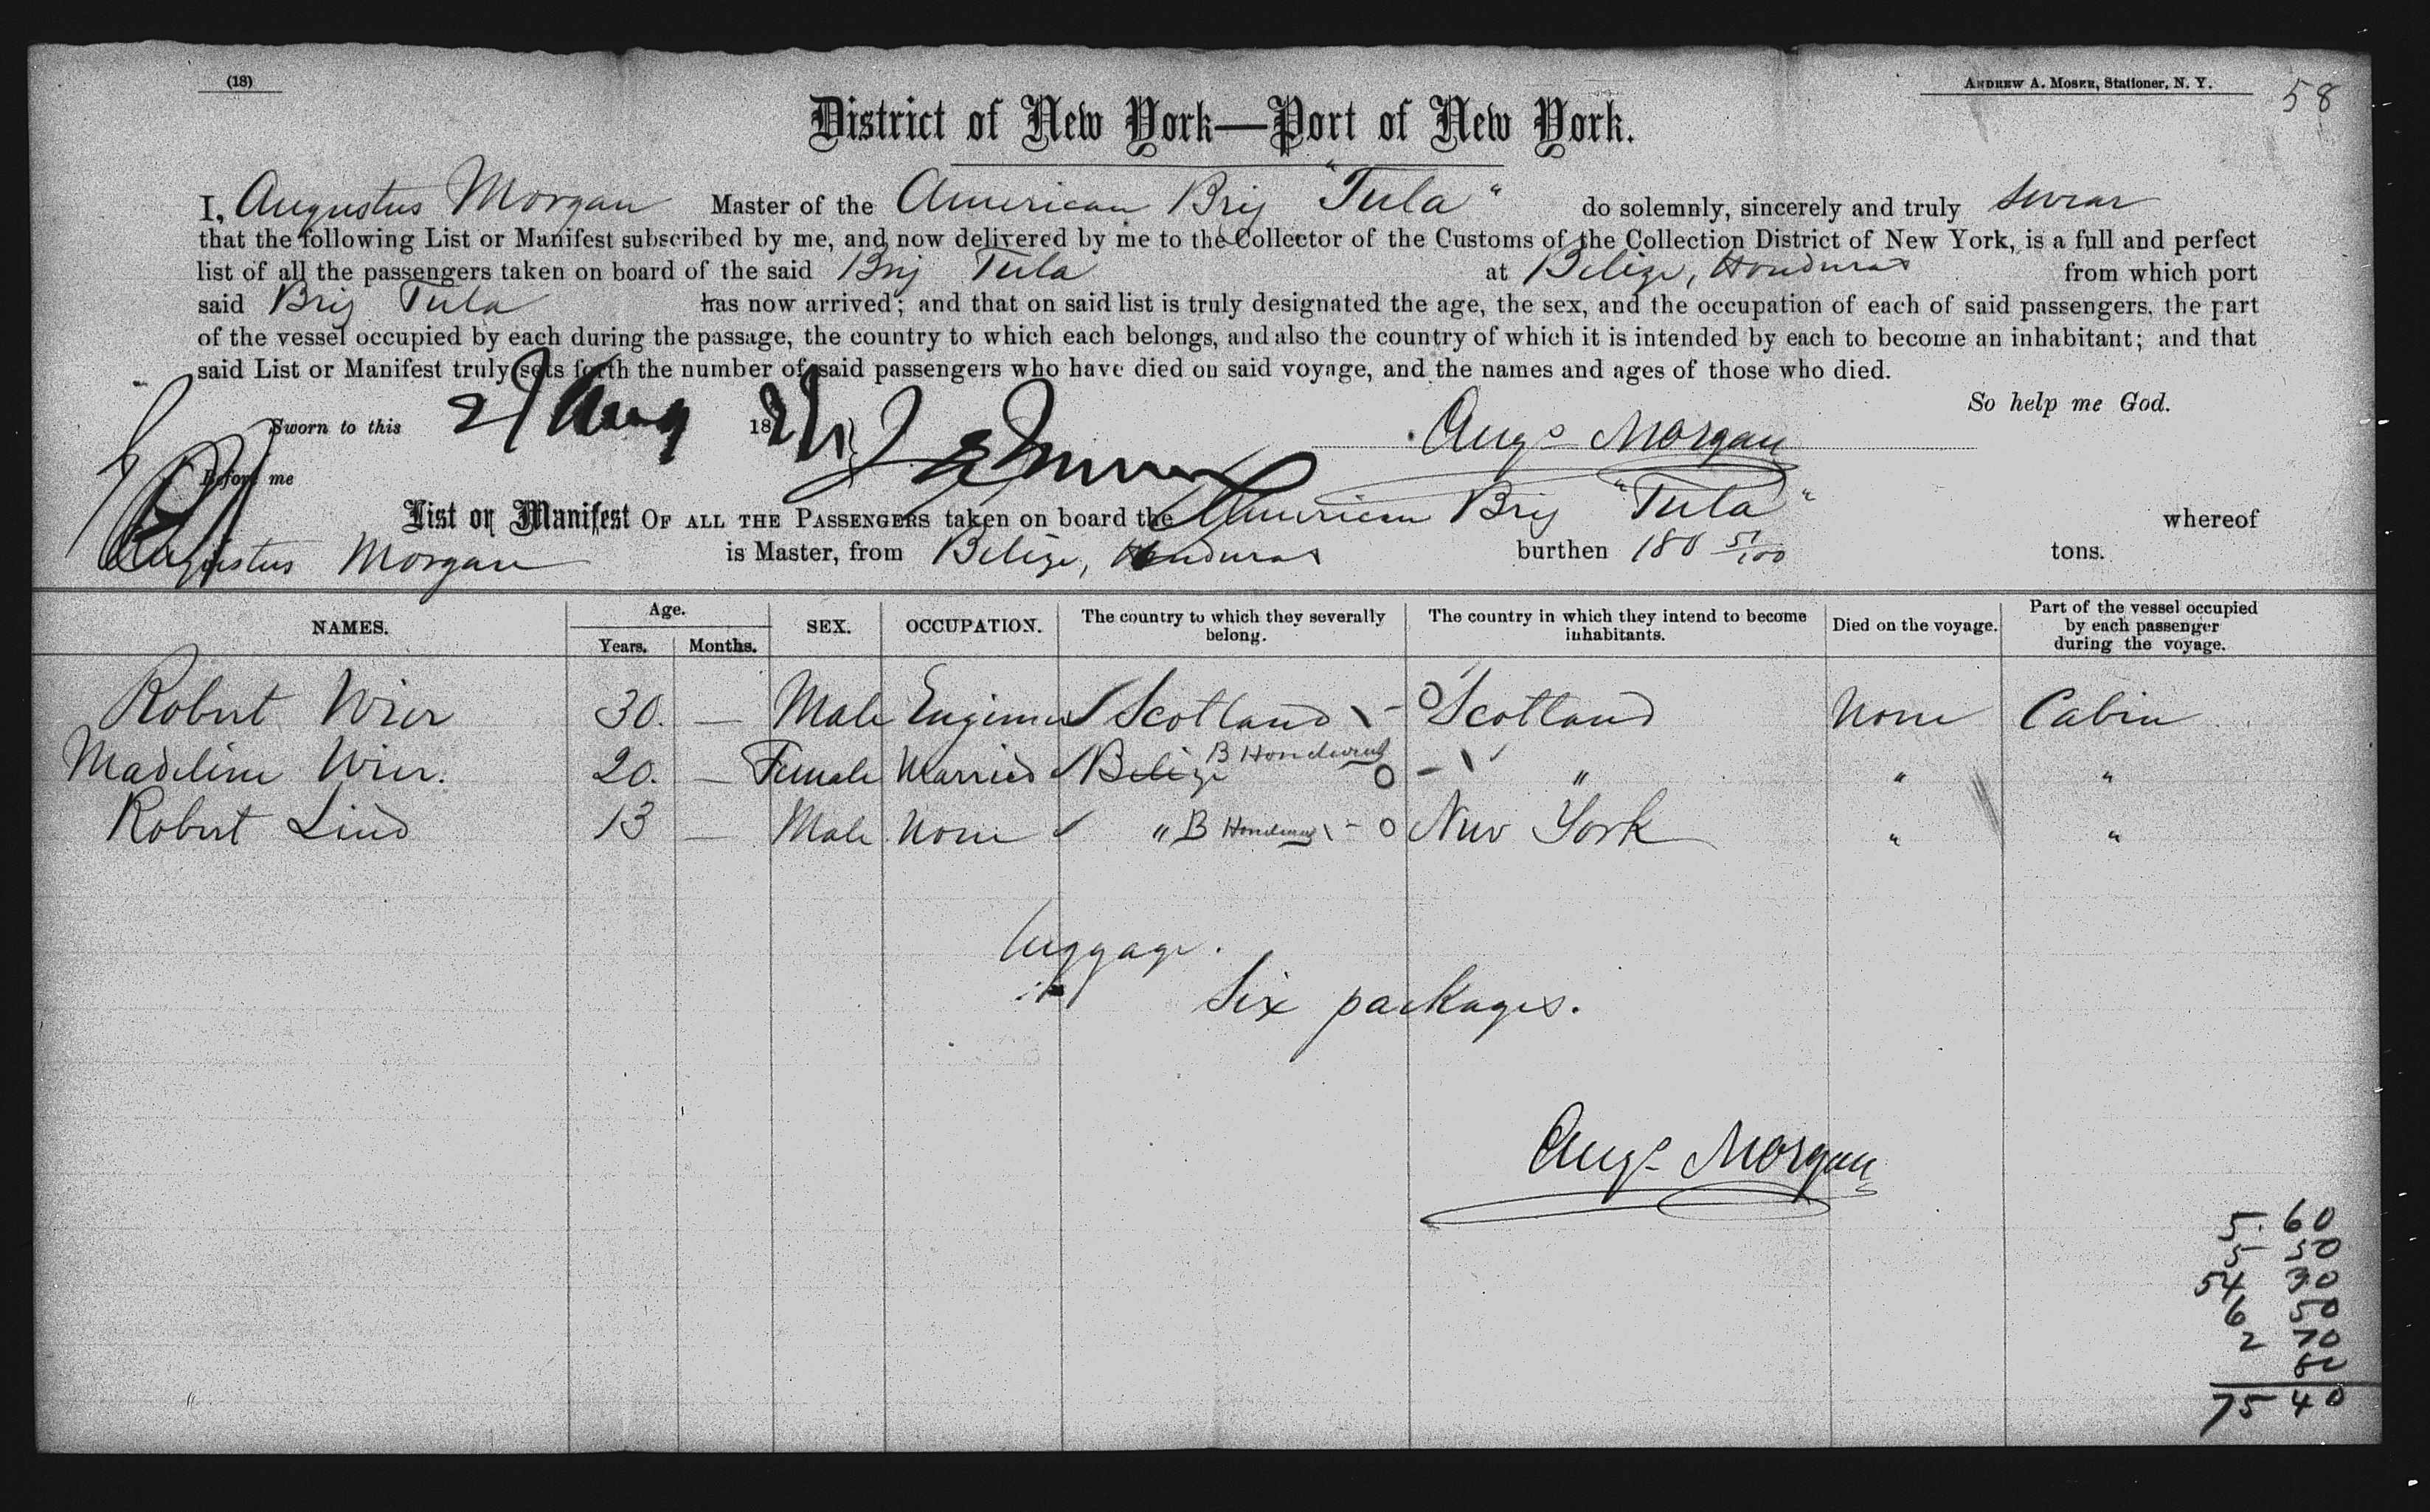 (18)
ANDREW A. MOSER, Stationer, N. Y.
58
District of New York—Port of New York.
I, Augustus Morgan Master of the American Brig "Tula" do solemnly, sincerely and truly swear
that the following List or Manifest subscribed by me, and now delivered by me to the Collector of the Customs of the Collection District of New York, is a full and perfect
list of all the passengers taken on board of the said Brig Tula at Belize, Honduras from which port
said Brig Tula has now arrived; and that on said list is truly designated the age, the sex, and the occupation of each of said passengers, the part
of the vessel occupied by each during the passage, the country to which each belongs, and also the country of which it is intended by each to become an inhabitant; and that
said List or Manifest truly sets forth the number of said passengers who have died on said voyage, and the names and ages of those who died.
So help me God.
Sworn to this Aug 18
Augs Morgan
Before me
List or Manifest OF ALL THE PASSENGERS taken on board the American Brig "Tula" whereof
Augustus Morgan is Master, from Belize, Honduras burthen 180 51/100 tons.
NAMES. Age. Years. Months. SEX. OCCUPATION. The country to which they severally belong. The country in which they intend to become inhabitants. Died on the voyage. Part of the vessel occupied by each passenger during the voyage.
Robert Wier 30. — Male Engineer Scotland Scotland None Cabin
Madeline Wier. 20. — Female Married Belize B Honduras " " "
Robert Lind 13 — Male None " B Honduras New York " "
Luggage.
Six packages.
Augs Morgan
5.60
5 50
54 30
6 50
2 70
80
75 40